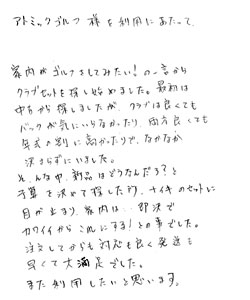 アトミックゴルフ 様を利用にあたって、
家内がゴルフをしてみたい!の一言から
クラブセットを探し始めました。最初は
中古から探しましたが、クラブは良くても
バックが気にいらなかったり、両方良くても
年式の割に高かったりで、なかなか
決まらずにいました。
そんな中、新品はどうなんだろ?と
予算を決めて探した所、ナイキのセットに
目が止まり、家内は、即決で
カワイイからこれにする!との事でした。
注文してからも対応も良く発送も
早くて大満足でした。
また利用したいと思います。